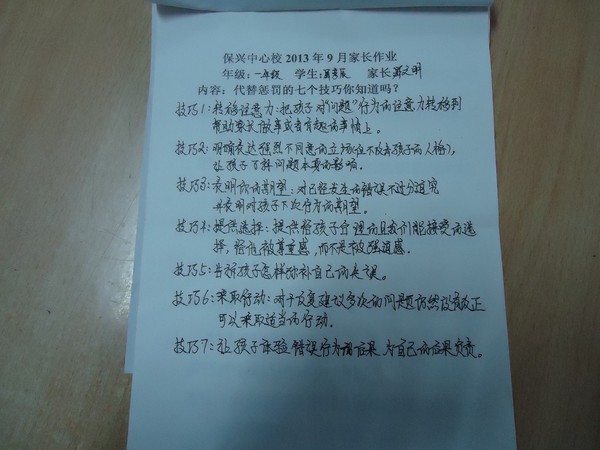 保兴中心校2013年9月家长作业
年级:一年级 学生: 家长
内容:代替惩罚的七个技巧你知道吗?
技巧1:转移注意力:把孩子对"问题"行为的注意力转移到
帮助家长做事或者有趣的事情上。
技巧2:明确表达强烈不同意的立场(但不攻击孩子的人格),
让孩子了解问题本身的影响.
技巧3:表明你的期望:对已经发生的错误不过分追究
并表明对孩子下次行为的期望.
技巧4:提供选择:提供给孩子合理的且我们能接受的选
择,给他被尊重感,而不是被强迫感.
技巧5:告诉孩子怎样弥补自己的失误。
技巧6:采取行动:对于反复建议多次的问题仍然没有改正
可以采取适当的行动.
技巧7:让孩子体验错误行为的后果 为自己的后果负责。